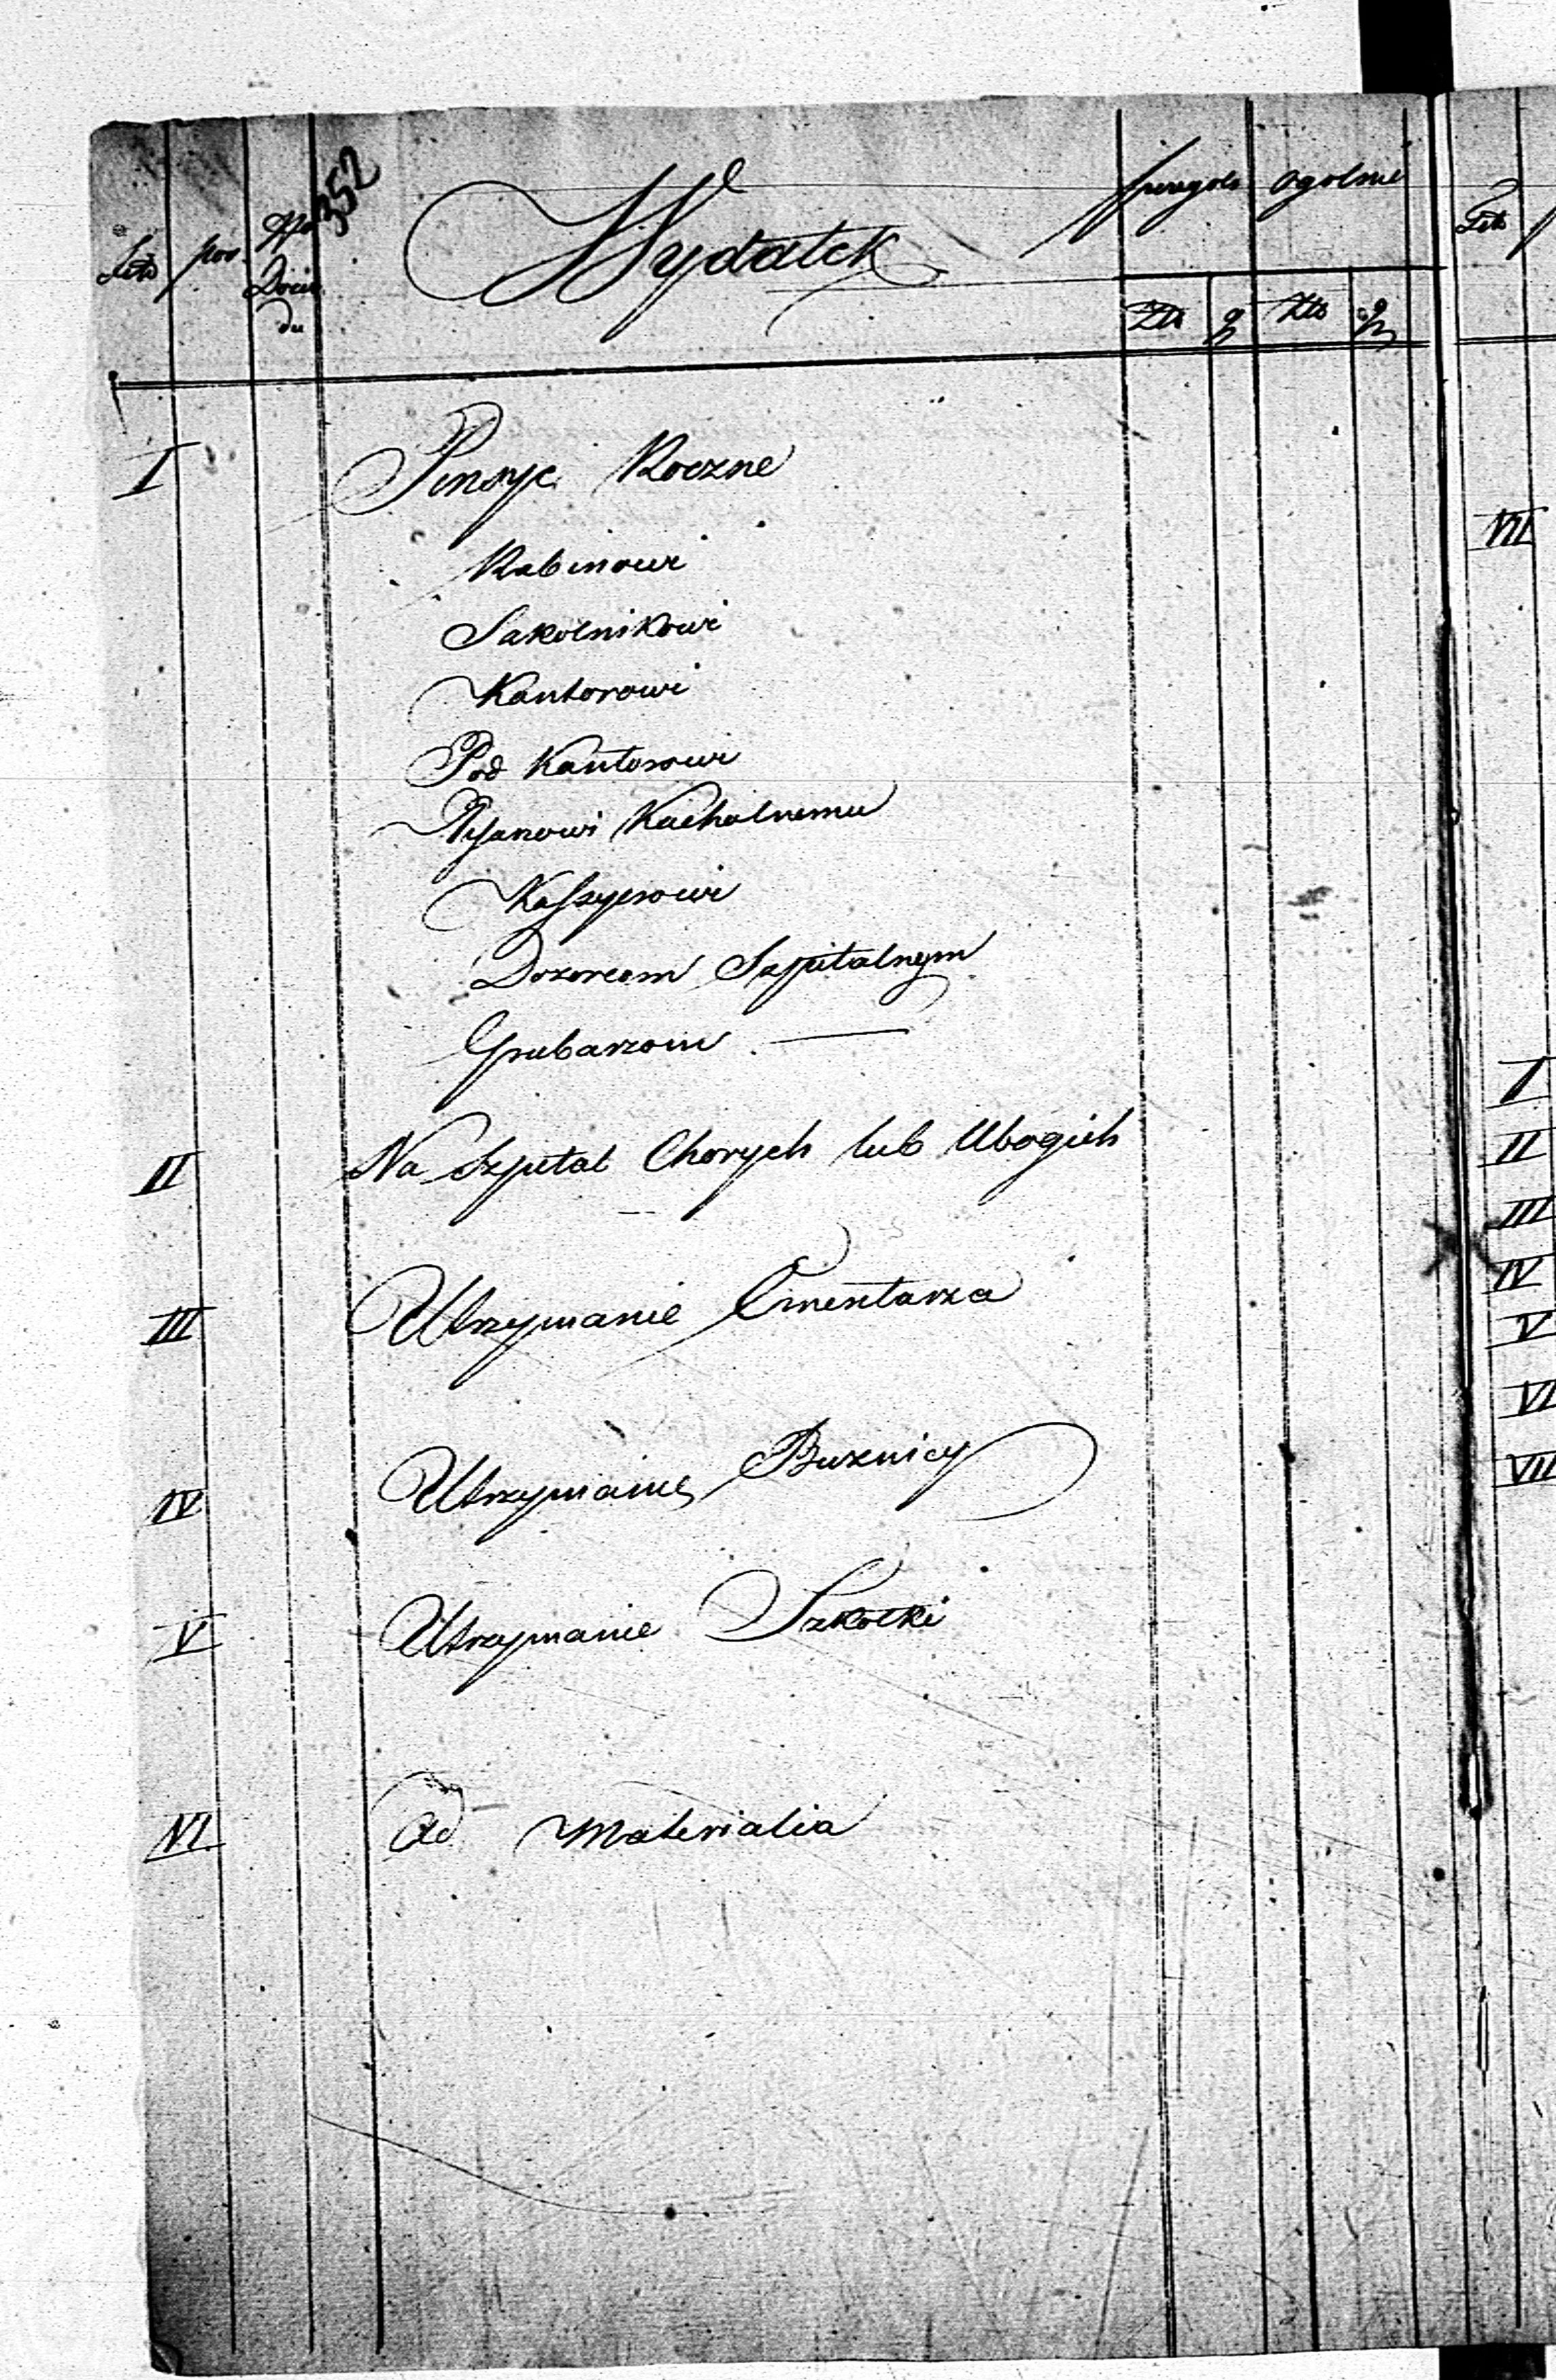 352
Tit. pos. No Docu du
Wydatek
szczegół. ogólnie
Złt g Złt g
I Pensye Roczne
Rabinowi
Szkolnikowi
Kantorowi
Pod Kantorowi
Pisarzowi Kachalnemu
Kaſsyerowi
Dozorcom Szpitalnym
Grabarzom
II Na Szpital Chorych lub Ubogich
III Utrzymanie Cmentarza
IV Utrzymanie Buznicy
V Utrzymanie Szkołki
VI Ad Materialia
Tit
VII
I
II
III
IV
V
VI
VII